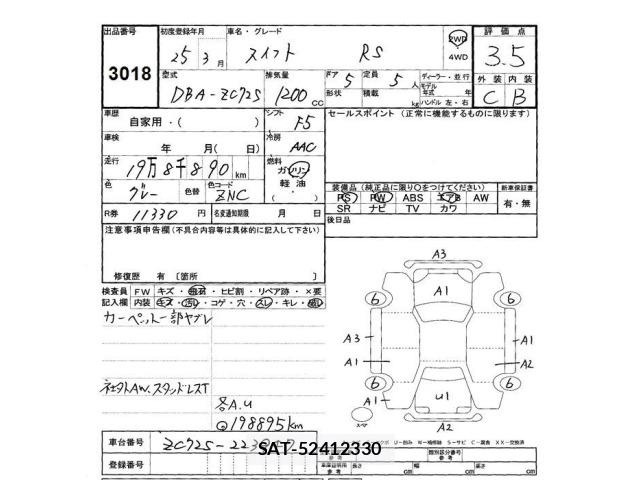 出品番号 初度登録年月 車名・グレード 2WD 評価点
3018 25年3月 スイフト RS 4WD 3.5
型式 排気量 ドア 5 定員 5人 ディーラー・並行 外装 内装
DBA-ZC72S 1200cc 形状 積載 kg モデル年式 年式 ハンドル 左・右 C B
車歴 自家用・( ) シフト F5 セールスポイント(正常に機能するものに限ります)
車検 年 月(日) 冷房 AAC
走行 19万8千890km 燃料 ガソリン 軽油 ( )
色 グレー 色替 色コード ZNC 装備品(純正品に限り○をつけてください) 新車保証書
PS PW ABS エアB AW 有・無
R券 11330円 名変通知期限 月 日 SR ナビ TV カワ
注意事項申告欄(不具合内容等は具体的に記入して下さい) 後日品
修復歴 有 〔箇所 〕
検査員 FW キズ・飛石・ヒビ割・リペア跡・×要
記入欄 内装 キズ・汚れ・コゲ・穴・スレ・キレ
カーペット一部ヤブレ
社外AW.スタッドレスT
各A.U
198895km
A3
A1
6 6
A3 A1
A1 A2
6 6
A1 U1
A2
スペア
車台番号 ZC72S-
SAT-52412330
登録番号
類別区分番号
参考
車庫証明用 参考 長さ cm 幅 cm 高さ cm